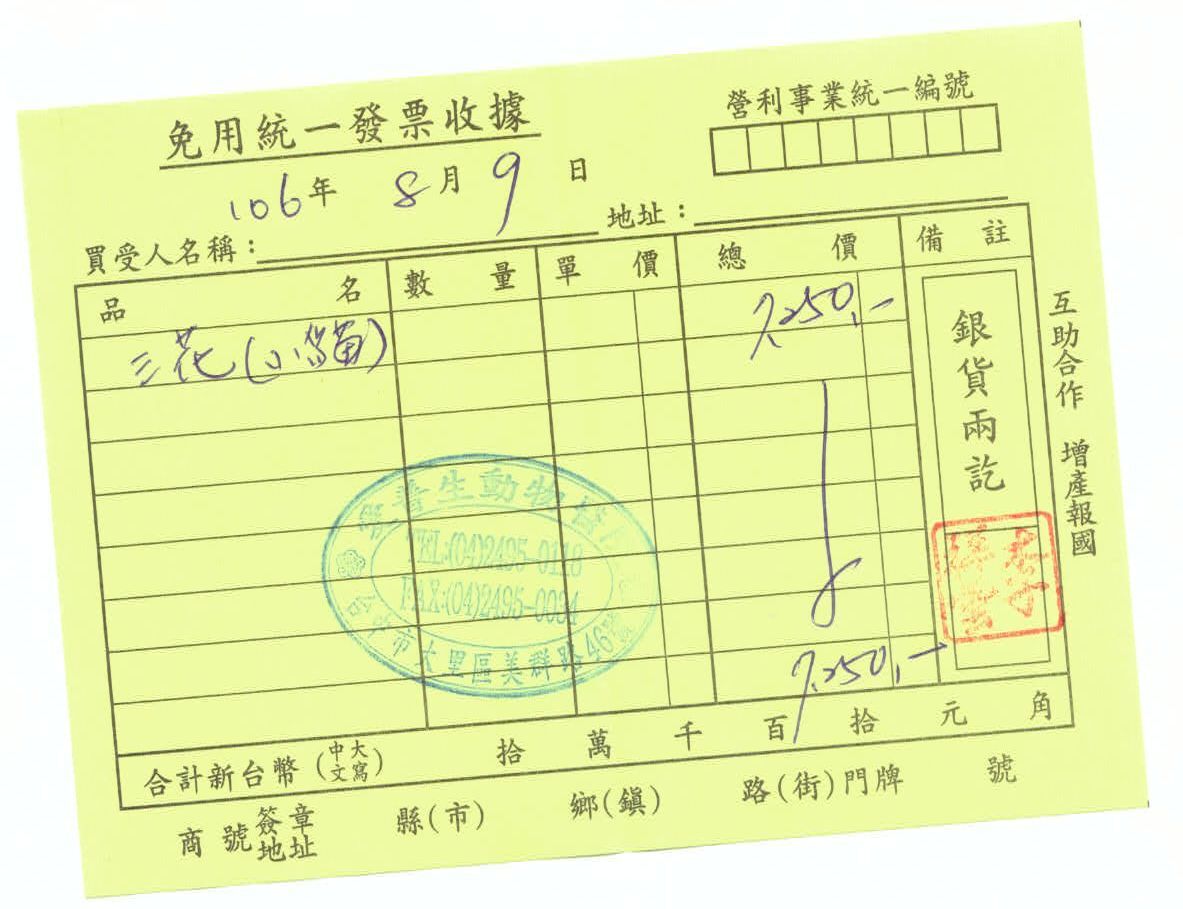 免用統一發票收據
營利事業統一編號
106年 8月 9日
買受人名稱： 地址：
品名 數量 單價 總價 備註
三花(小貓) 7,250.-
銀貨兩訖
7,250.-
生動物
TEL:(04)2495-0118
FAX:(04)2495-0034
台中市大里區美群路46號
合計新台幣(中文大寫) 拾 萬 千 百 拾 元 角
商號簽章地址 縣(市) 鄉(鎮) 路(街)門牌 號
互助合作 增產報國